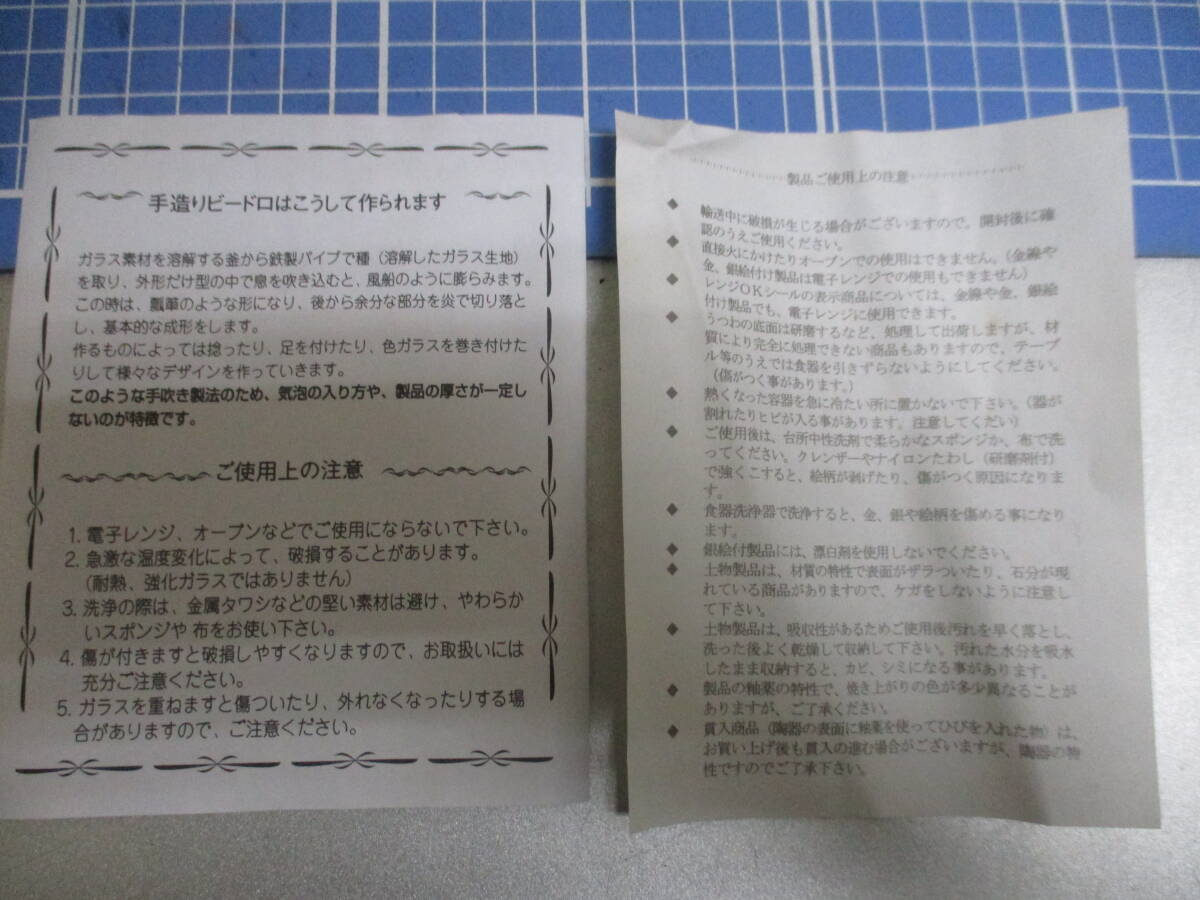 手造りビードロはこうして作られます
ガラス素材を溶解する釜から鉄製パイプで種（溶解したガラス生地）
を取り、外形だけ型の中で息を吹き込むと、風船のように膨らみます。
この時は、瓢箪のような形になり、後から余分な部分を炎で切り落と
し、基本的な成形をします。
作るものによっては捻ったり、足を付けたり、色ガラスを巻き付けた
りして様々なデザインを作っていきます。
このような手吹き製法のため、気泡の入り方や、製品の厚さが一定し
ないのが特徴です。
ご使用上の注意
1. 電子レンジ、オーブンなどでご使用にならないで下さい。
2. 急激な温度変化によって、破損することがあります。
（耐熱、強化ガラスではありません）
3. 洗浄の際は、金属タワシなどの堅い素材は避け、やわらか
いスポンジや 布をお使い下さい。
4. 傷が付きますと破損しやすくなりますので、お取扱いには
充分ご注意ください。
5. ガラスを重ねますと傷ついたり、外れなくなったりする場
合がありますので、ご注意ください。
製品ご使用上の注意
◆ 輸送中に破損が生じる場合がございますので。開封後に確
認のうえご使用ください。
◆ 直接火にかけたりオーブンでの使用はできません。（金線や
金、銀絵付け製品は電子レンジでの使用もできません）
レンジＯＫシールの表示商品については、金線や金、銀絵
付け製品でも、電子レンジに使用できます。
◆ うつわの底面は研磨するなど、処理して出荷しますが、材
質により完全に処理できない商品もありますので、テーブ
ル等のうえでは食器を引きずらないようにしてください。
（傷がつく事があります。）
◆ 熱くなった容器を急に冷たい所に置かないで下さい。（器が
割れたりヒビが入る事があります。注意してくだい）
◆ ご使用後は、台所中性洗剤で柔らかなスポンジか、布で洗
ってください。クレンザーやナイロンたわし（研磨剤付）
で強くこすると、絵柄が剥げたり、傷がつく原因になりま
す。
◆ 食器洗浄器で洗浄すると、金、銀や絵柄を傷める事になり
ます。
◆ 銀絵付製品には、漂白剤を使用しないでください。
◆ 土物製品は、材質の特性で表面がザラついたり、石分が現
れている商品がありますので、ケガをしないように注意し
て下さい。
◆ 土物製品は、吸収性があるためご使用後汚れを早く落とし、
洗った後よく乾燥して収納して下さい。汚れた水分を吸水
したまま収納すると、カビ、シミになる事があります。
◆ 製品の釉薬の特性で、焼き上がりの色が多少異なることが
ありますが、ご了承ください。
◆ 貫入商品（陶器の表面に釉薬を使ってひびを入れた物）は、
お買い上げ後も貫入の進む場合がございますが、陶器の特
性ですのでご了承下さい。